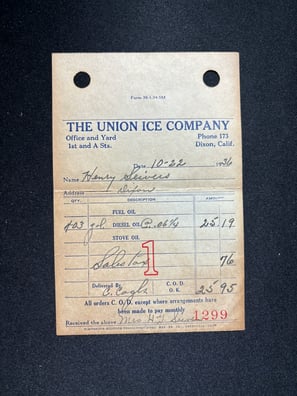 THE UNION ICE COMPANY
Office and Yard Phone 173
1st and A Sts. Dixon, Calif.
Date 10-22 1936
Name Henry Seivers
Address Dixon
QTY. DESCRIPTION AMOUNT
FUEL OIL
403 gal DIESEL OIL @ .06¼ 25.19
STOVE OIL
Sales Tax 76
1
Delivered By C. O. D.
O. K. 25 95
All orders C. O. D. except where arrangements have
been made to pay monthly
Received the above Mrs H 1299